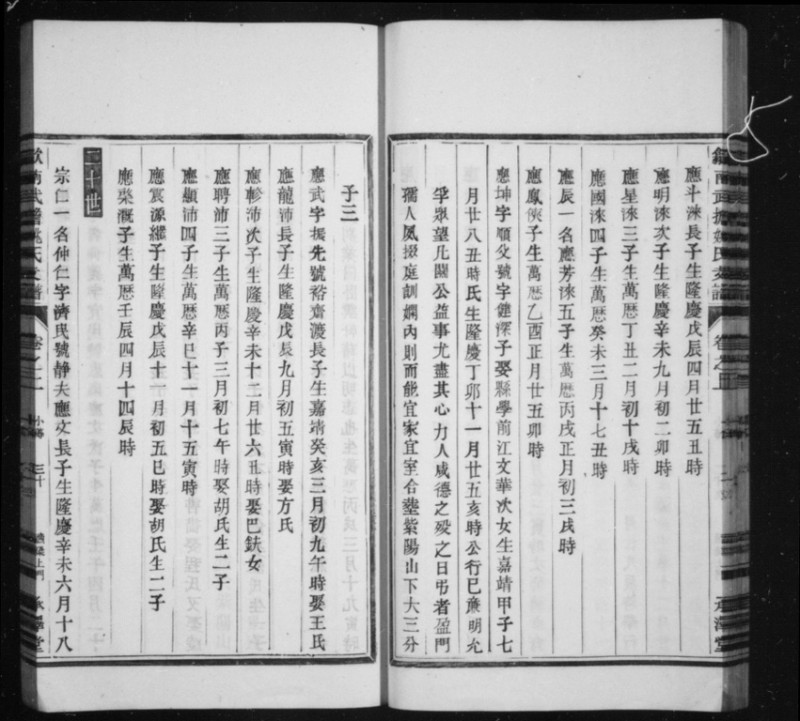 應斗淶長子生隆慶戊辰四月廿五丑時
應明淶次子生隆慶辛未九月初二卯時
應星淶三子生萬厯丁丑二月初十戌時
應國淶四子生萬厯癸未三月十七丑時
應辰一名應芳淶五子生萬厯丙戌正月初三戌時
應鳳俠子生萬厯乙酉正月廿五卯時
應坤字順父號字鍾澤子娶縣學前江文華次女生嘉靖甲子七
月廿八丑時氏生隆慶丁卯十一月廿五亥時公行巳廉明允
孚眾望凡闔公益事尤盡其心力人咸德之歿之日弔者盈門
孺人夙掇庭訓嫻內則而能宜家宜室合塟紫陽山下大三分
子三
應武字振先號裕齋渡長子生嘉靖癸亥三月初九午時娶王氏
應龍沛長子生隆慶戊辰九月初五寅時娶方氏
應軫沛次子生隆慶辛未十二月廿六丑時娶巴鈇女
應聘沛三子生萬厯丙子三月初七午時娶胡氏生二子
應顯沛四子生萬厯辛巳十一月十五寅時
應宸源繼子生隆慶戊辰十一月初五巳時娶胡氏生二子
應棨溉子生萬厯壬辰四月十四辰時
二十世
宗仁一名仲仁字濟民號靜夫應文長子生隆慶辛未六月十八
卷之二
三十
承澤堂